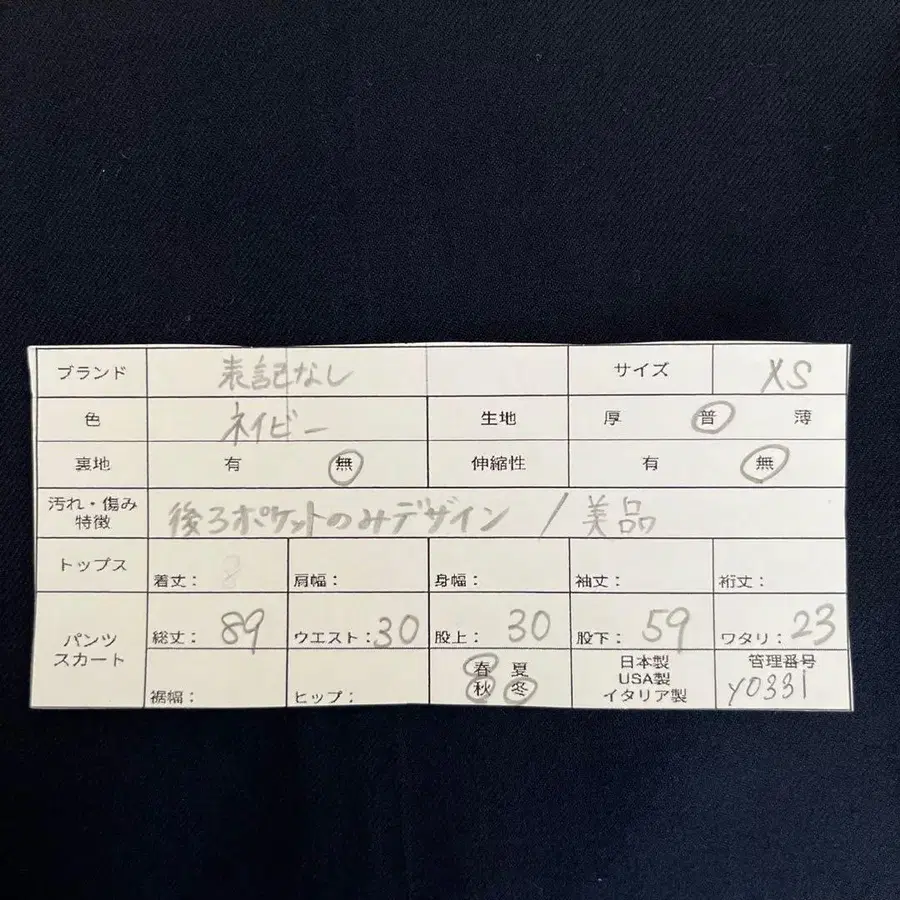 ブランド 表記なし サイズ XS
色 ネイビー 生地 厚 普 薄
裏地 有 無 伸縮性 有 無
汚れ・傷み
特徴
後ろポケットのみデザイン / 美品
トップス 着丈： 8 肩幅： 身幅： 袖丈： 裄丈：
パンツ
スカート
総丈： 89 ウエスト：30 股上： 30 股下： 59 ワタリ：23
裾幅： ヒップ：
春 夏
秋 冬
日本製
USA製
イタリア製
管理番号
Y0331